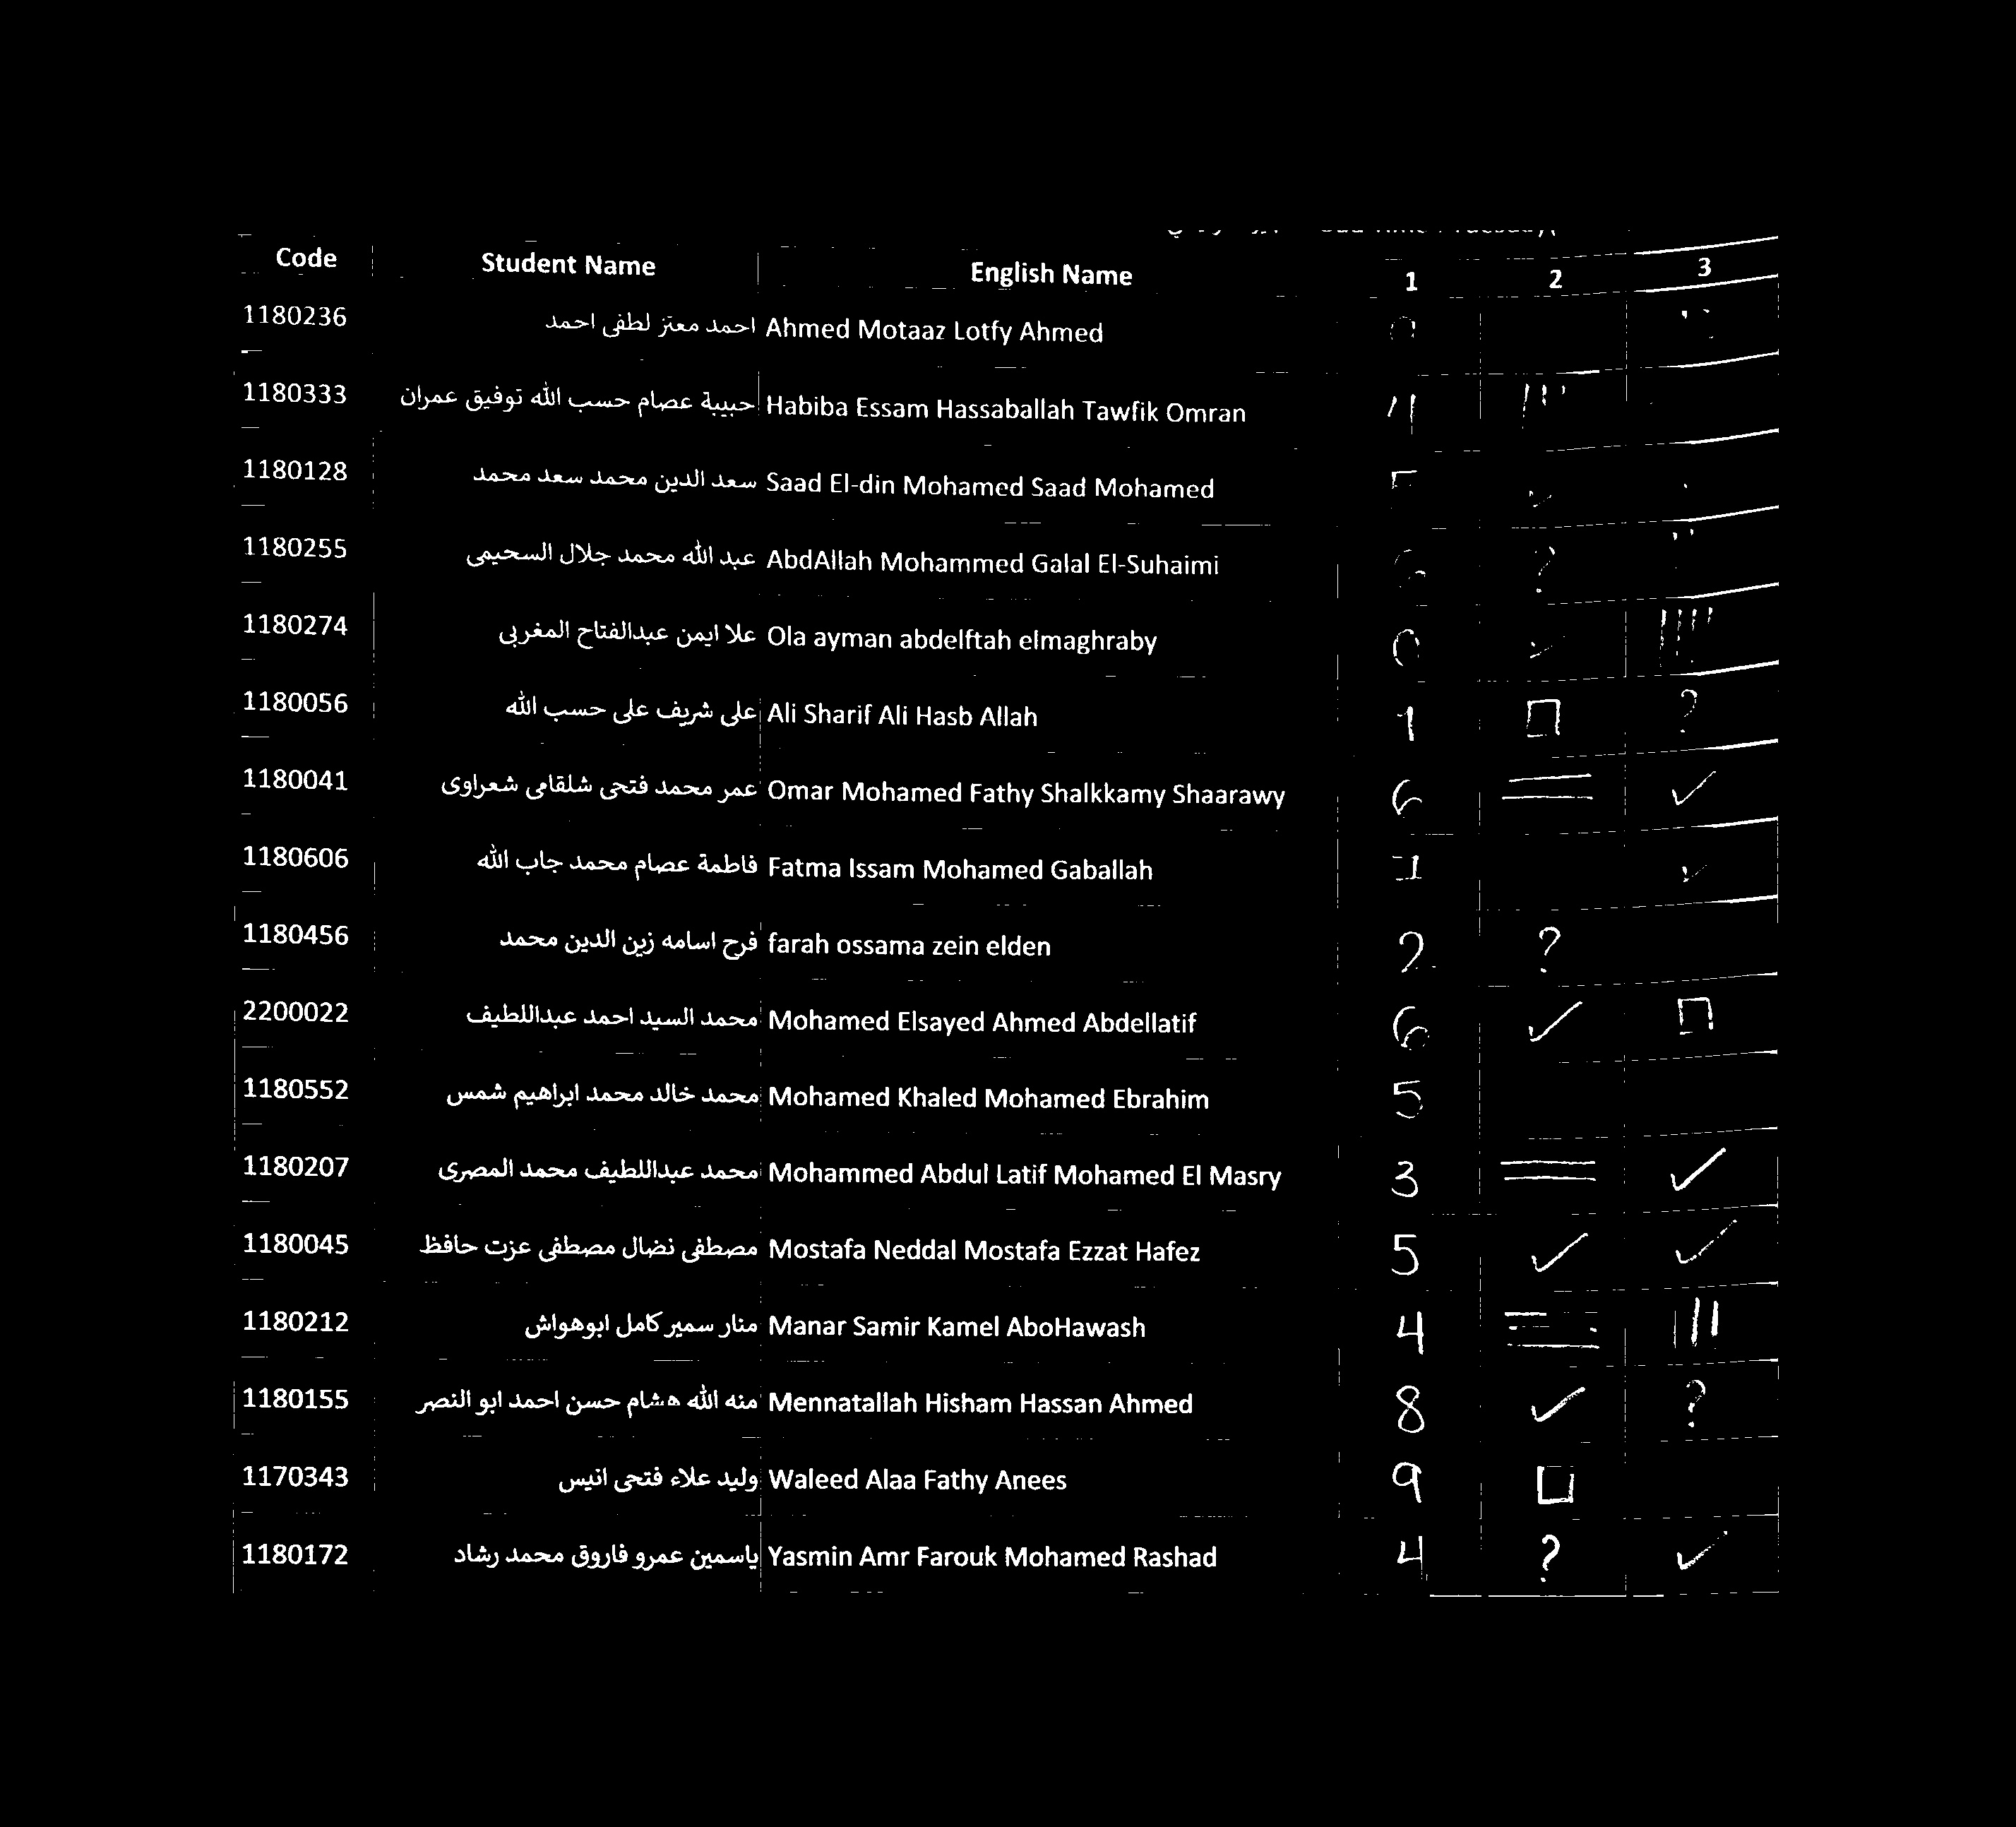 Code Student Name English Name 1 2 3
1180236 احمد معتز لطفى احمد Ahmed Motaaz Lotfy Ahmed
1180333 حبيبة عصام حسب الله توفيق عمران Habiba Essam Hassaballah Tawfik Omran
1180128 سعد الدين محمد سعد محمد Saad El-din Mohamed Saad Mohamed 5 ✓
1180255 عبد الله محمد جلال السحيمى AbdAllah Mohammed Galal El-Suhaimi 6 ?
1180274 علا ايمن عبدالفتاح المغربى Ola ayman abdelftah elmaghraby ✓
1180056 على شريف على حسب الله Ali Sharif Ali Hasb Allah 1 □ ?
1180041 عمر محمد فتحى شلقامى شعراوى Omar Mohamed Fathy Shalkkamy Shaarawy 6 ✓
1180606 فاطمة عصام محمد جاب الله Fatma Issam Mohamed Gaballah ✓
1180456 فرح اسامه زين الدين محمد farah ossama zein elden 2 ?
2200022 محمد السيد احمد عبداللطيف Mohamed Elsayed Ahmed Abdellatif 6 ✓ □
1180552 محمد خالد محمد ابراهيم شمس Mohamed Khaled Mohamed Ebrahim 5
1180207 محمد عبداللطيف محمد المصرى Mohammed Abdul Latif Mohamed El Masry 3 ✓
1180045 مصطفى نضال مصطفى عزت حافظ Mostafa Neddal Mostafa Ezzat Hafez 5 ✓ ✓
1180212 منار سمير كامل ابوهواش Manar Samir Kamel AboHawash 4 |||
1180155 منه الله هشام حسن احمد ابو النصر Mennatallah Hisham Hassan Ahmed 8 ✓ ?
1170343 وليد علاء فتحى انيس Waleed Alaa Fathy Anees 9 □
1180172 ياسمين عمرو فاروق محمد رشاد Yasmin Amr Farouk Mohamed Rashad 4 ? ✓